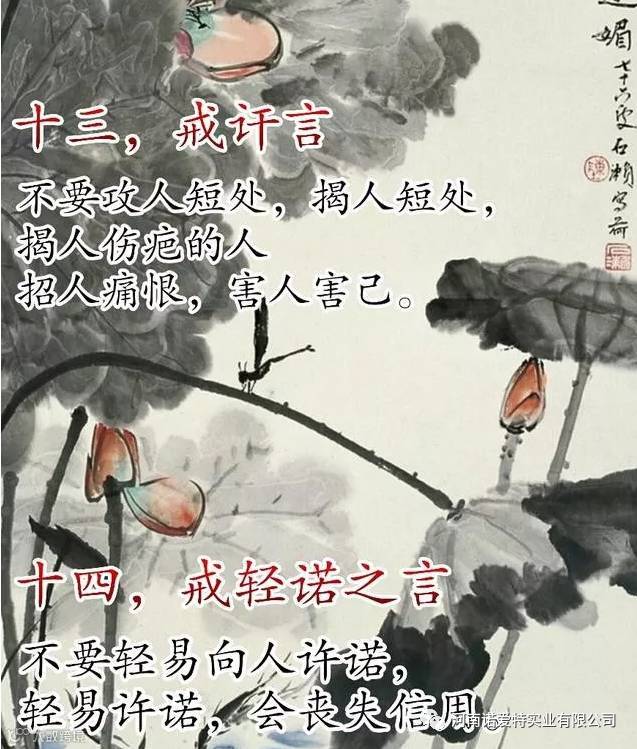 十三，戒讦言
不要攻人短处，揭人短处，
揭人伤疤的人
招人痛恨，害人害己。
十四，戒轻诺之言
不要轻易向人许诺，
轻易许诺，会丧失信用。
河南诺爱特实业有限公司
大数跨境
媚
七十六叟石濑写荷